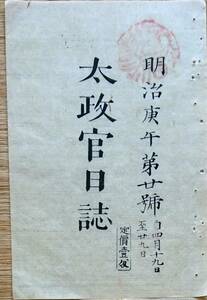 明治庚午第廿號
自四月十九日
至廿九日
太政官日誌
定價壹匁